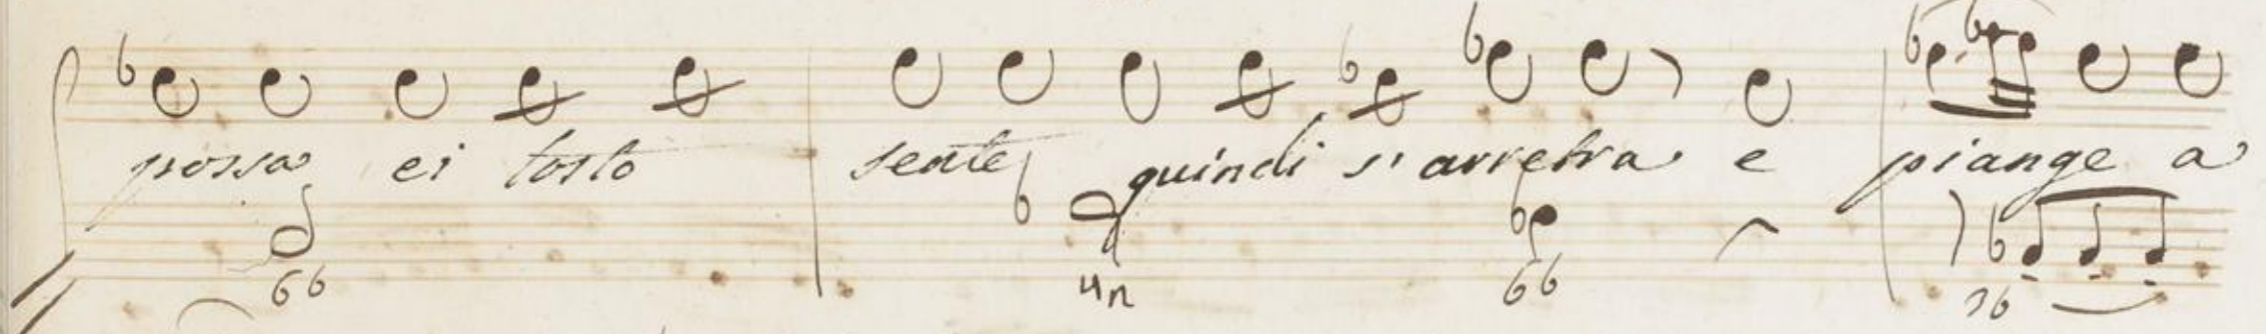 possa ei tosto sente quindi s'arretra e piange a
6b 4n 6b 7b